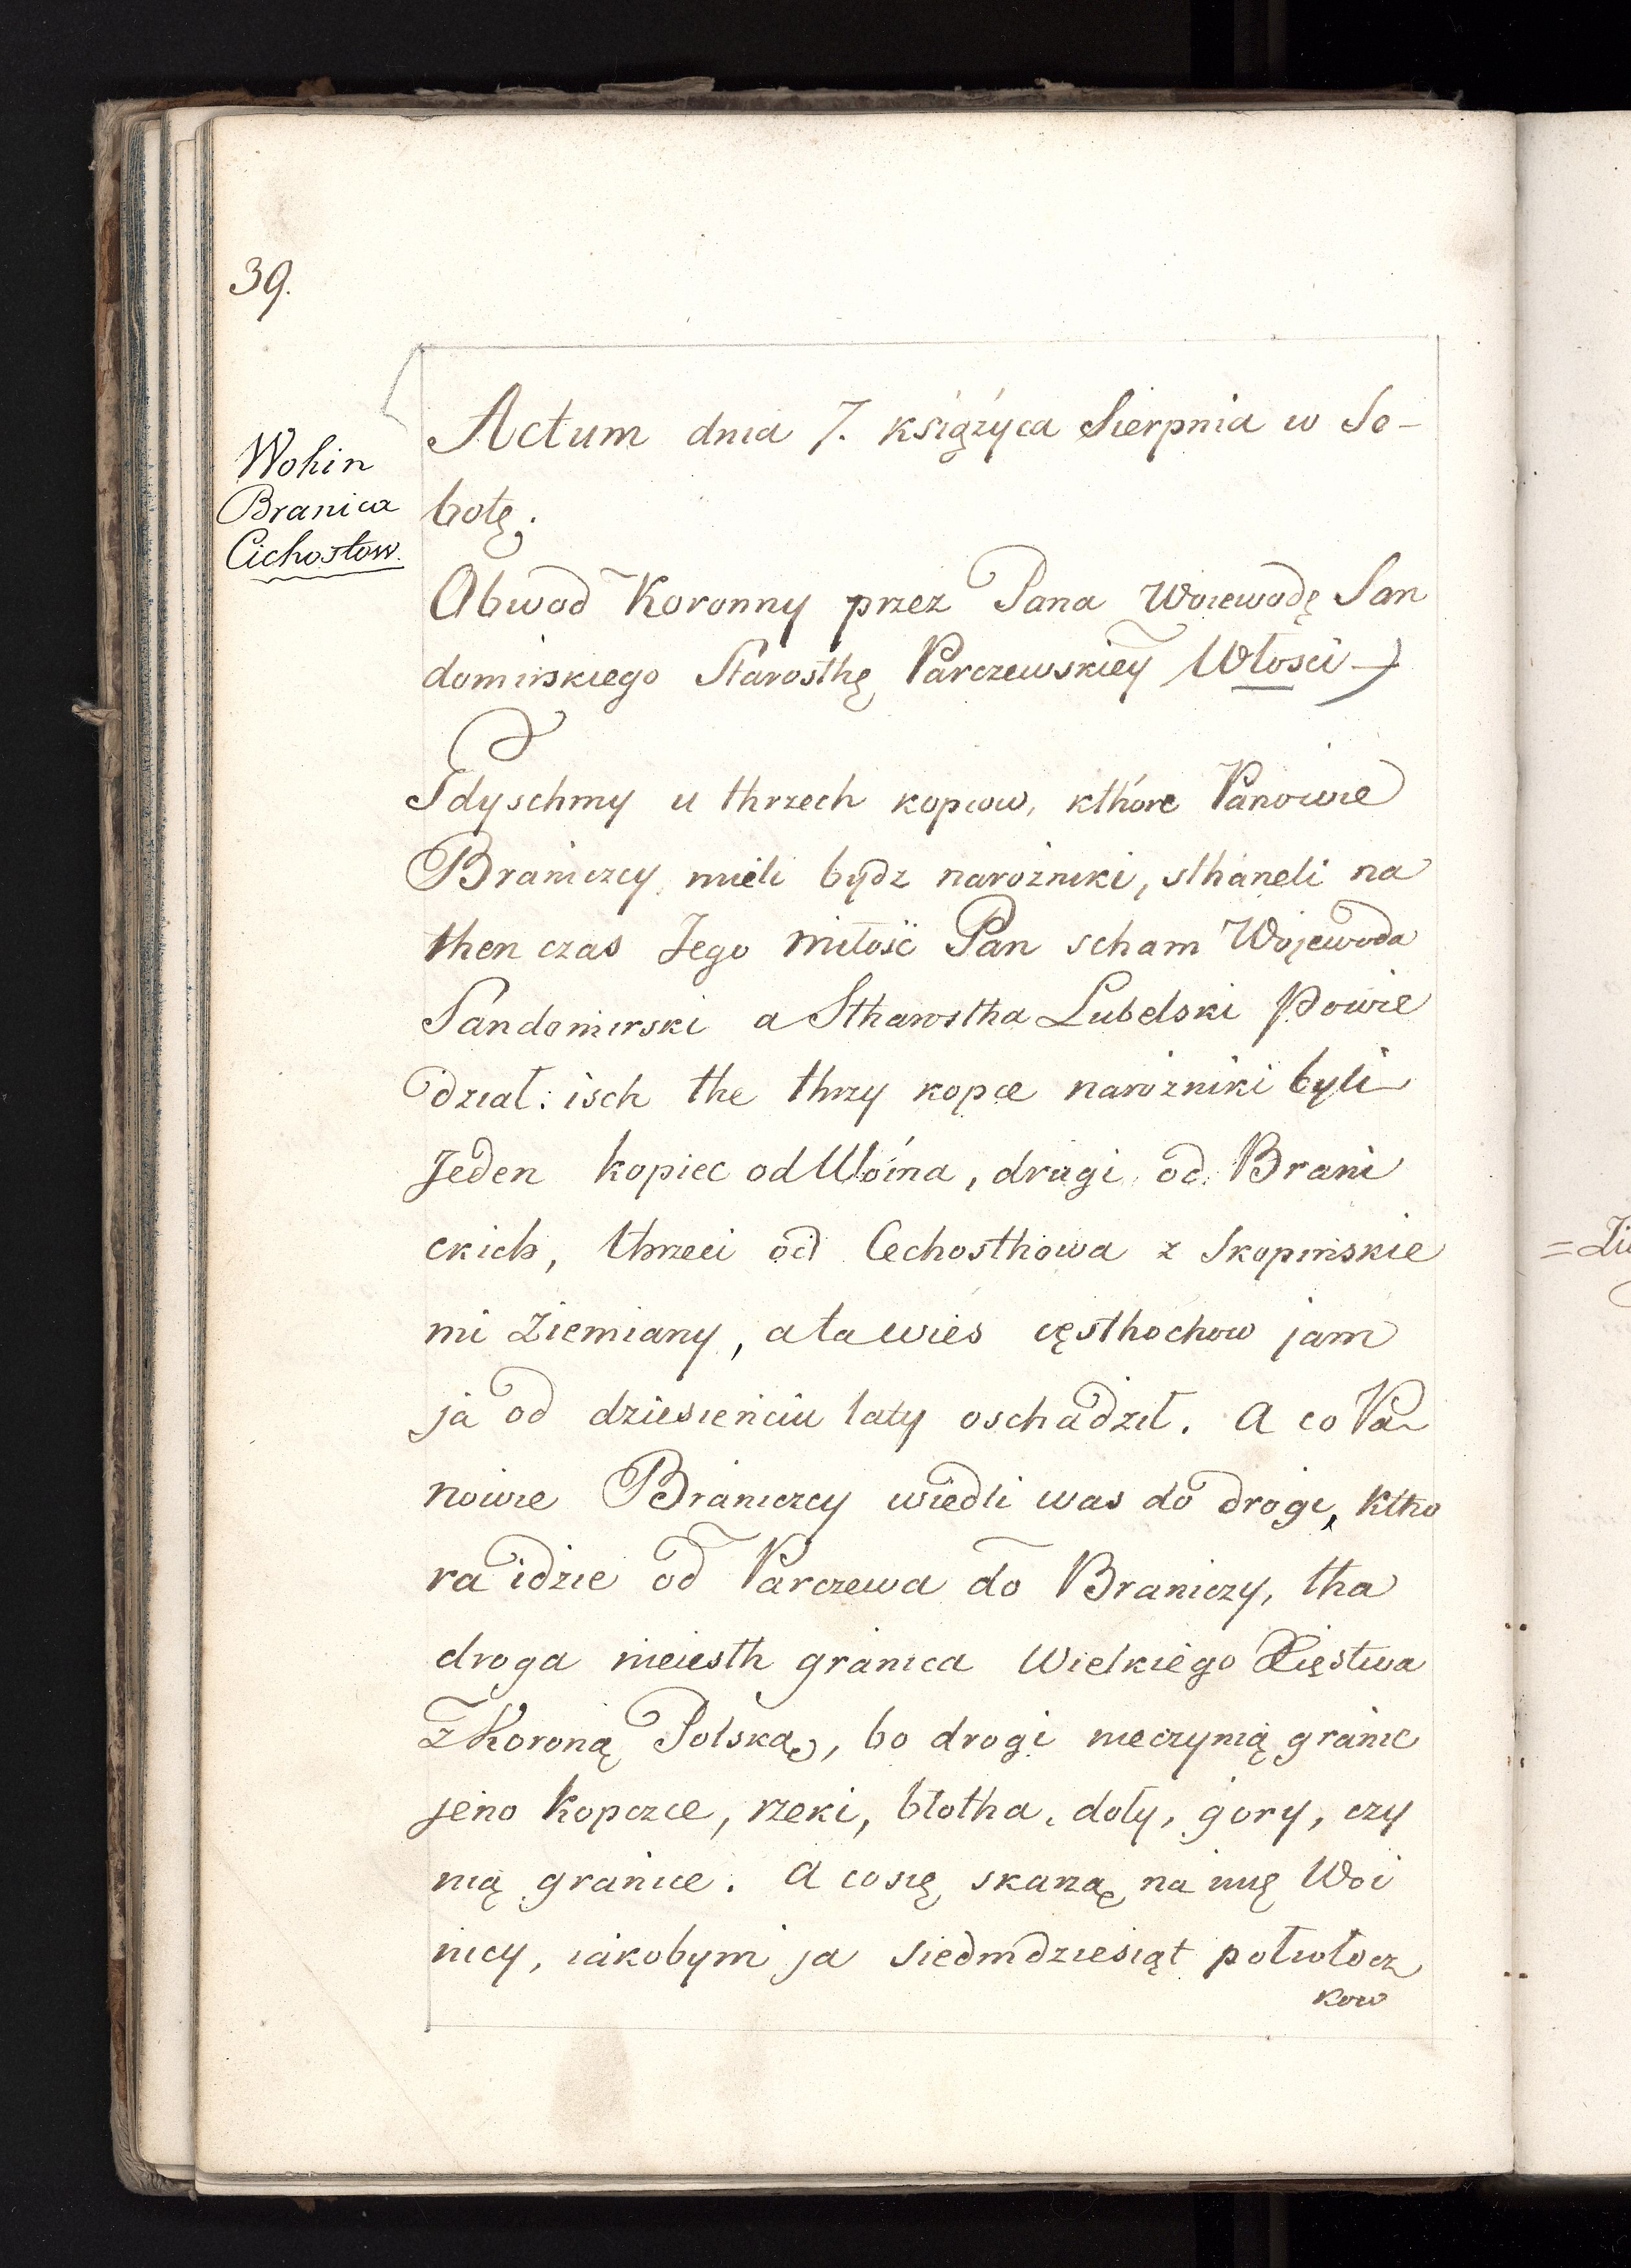 39.
Wohin
Branica
Cichostow.
Actum dnia 7. księżyca Sierpnia w So-
botę.
Obwod Koronny przez Pana Woiewodę San
domirskiego Starosthę Parczewskiey Włosci
Gdyschmy u thrzech kopcow, kthóre Panowie
Braniczcy mieli bydz narożniki, sthaneli na
then czas Jego miłość Pan scham Wojewoda
Sandomirski a Stharostha Lubelski Powie
dział: isch the thrzy kopce narożniki byli
Jeden kopiec od Woina, drugi od Brani
ckich, thrzeci od Cechosthowa z Skopinskie
mi Ziemiany, a ta wies cęsthochow jam
ja od dziesieńciu laty oschadził. A co Pa
nowie Braniczcy wiedli was do drogi, ktho
ra idzie od Parczewa do Braniczy, tha
droga nieiesth granica Wielkiego Xięstwa
z Koroną Polską, bo drogi nieczynią granic
jeno kopcze, rzeki, błotha, doły, gory, czy
nią granice. A cosię skarzą na imię Woi
nicy, iakobym ja siedmdziesiąt połwłocz
kow
= Zi